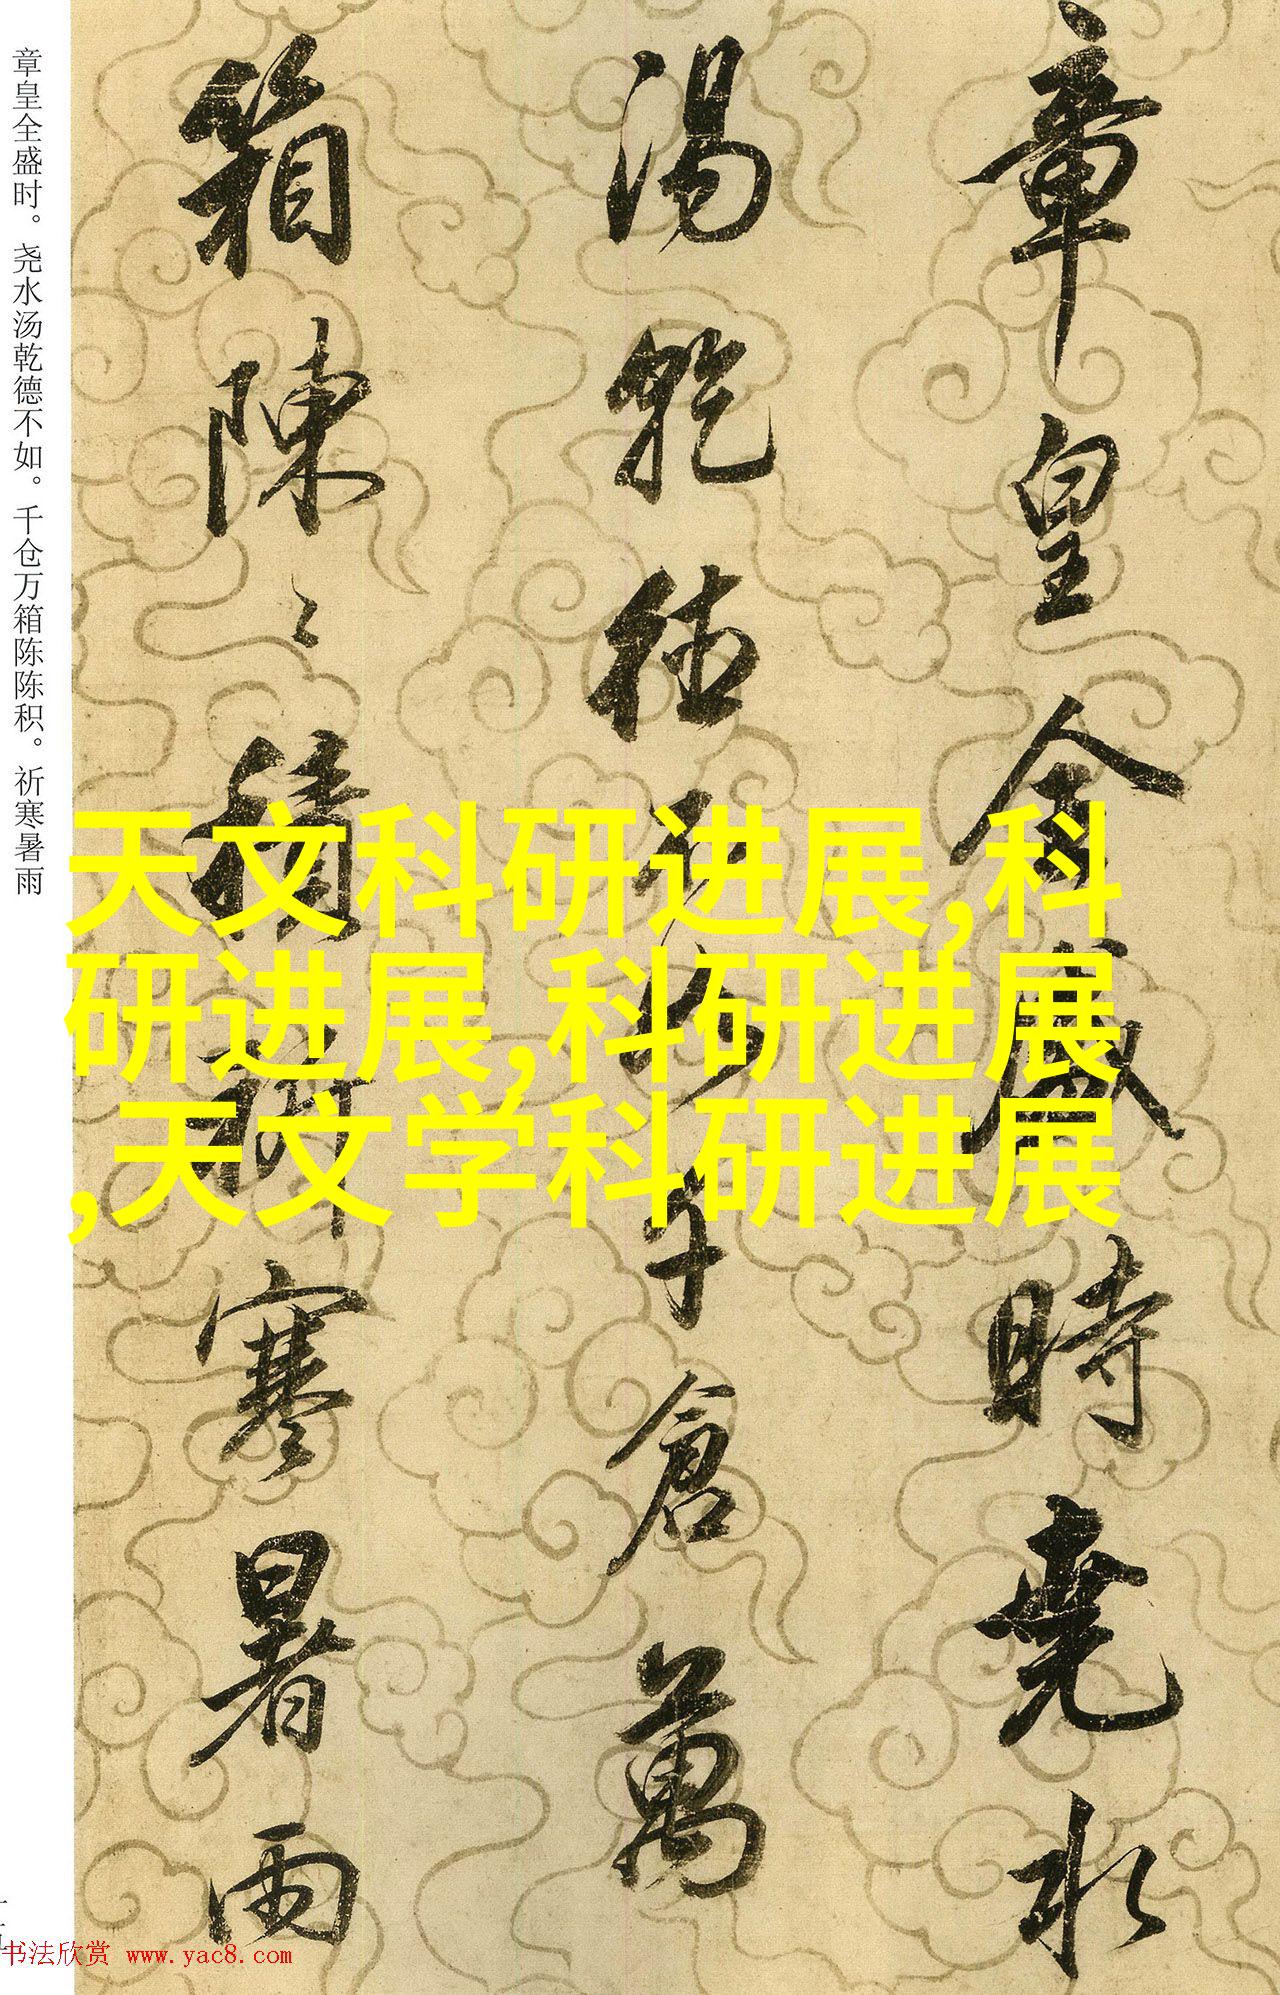 章皇全盛时。尧水汤乾德不如。千仓万箱陈陈积。祈寒暑雨
章皇全盛時堯水
湯乾德不如千倉萬
箱陳〻積祈寒暑雨
天文科研进展,科
研进展,科研进展
,天文学科研进展
书法欣赏 www.yac8.com